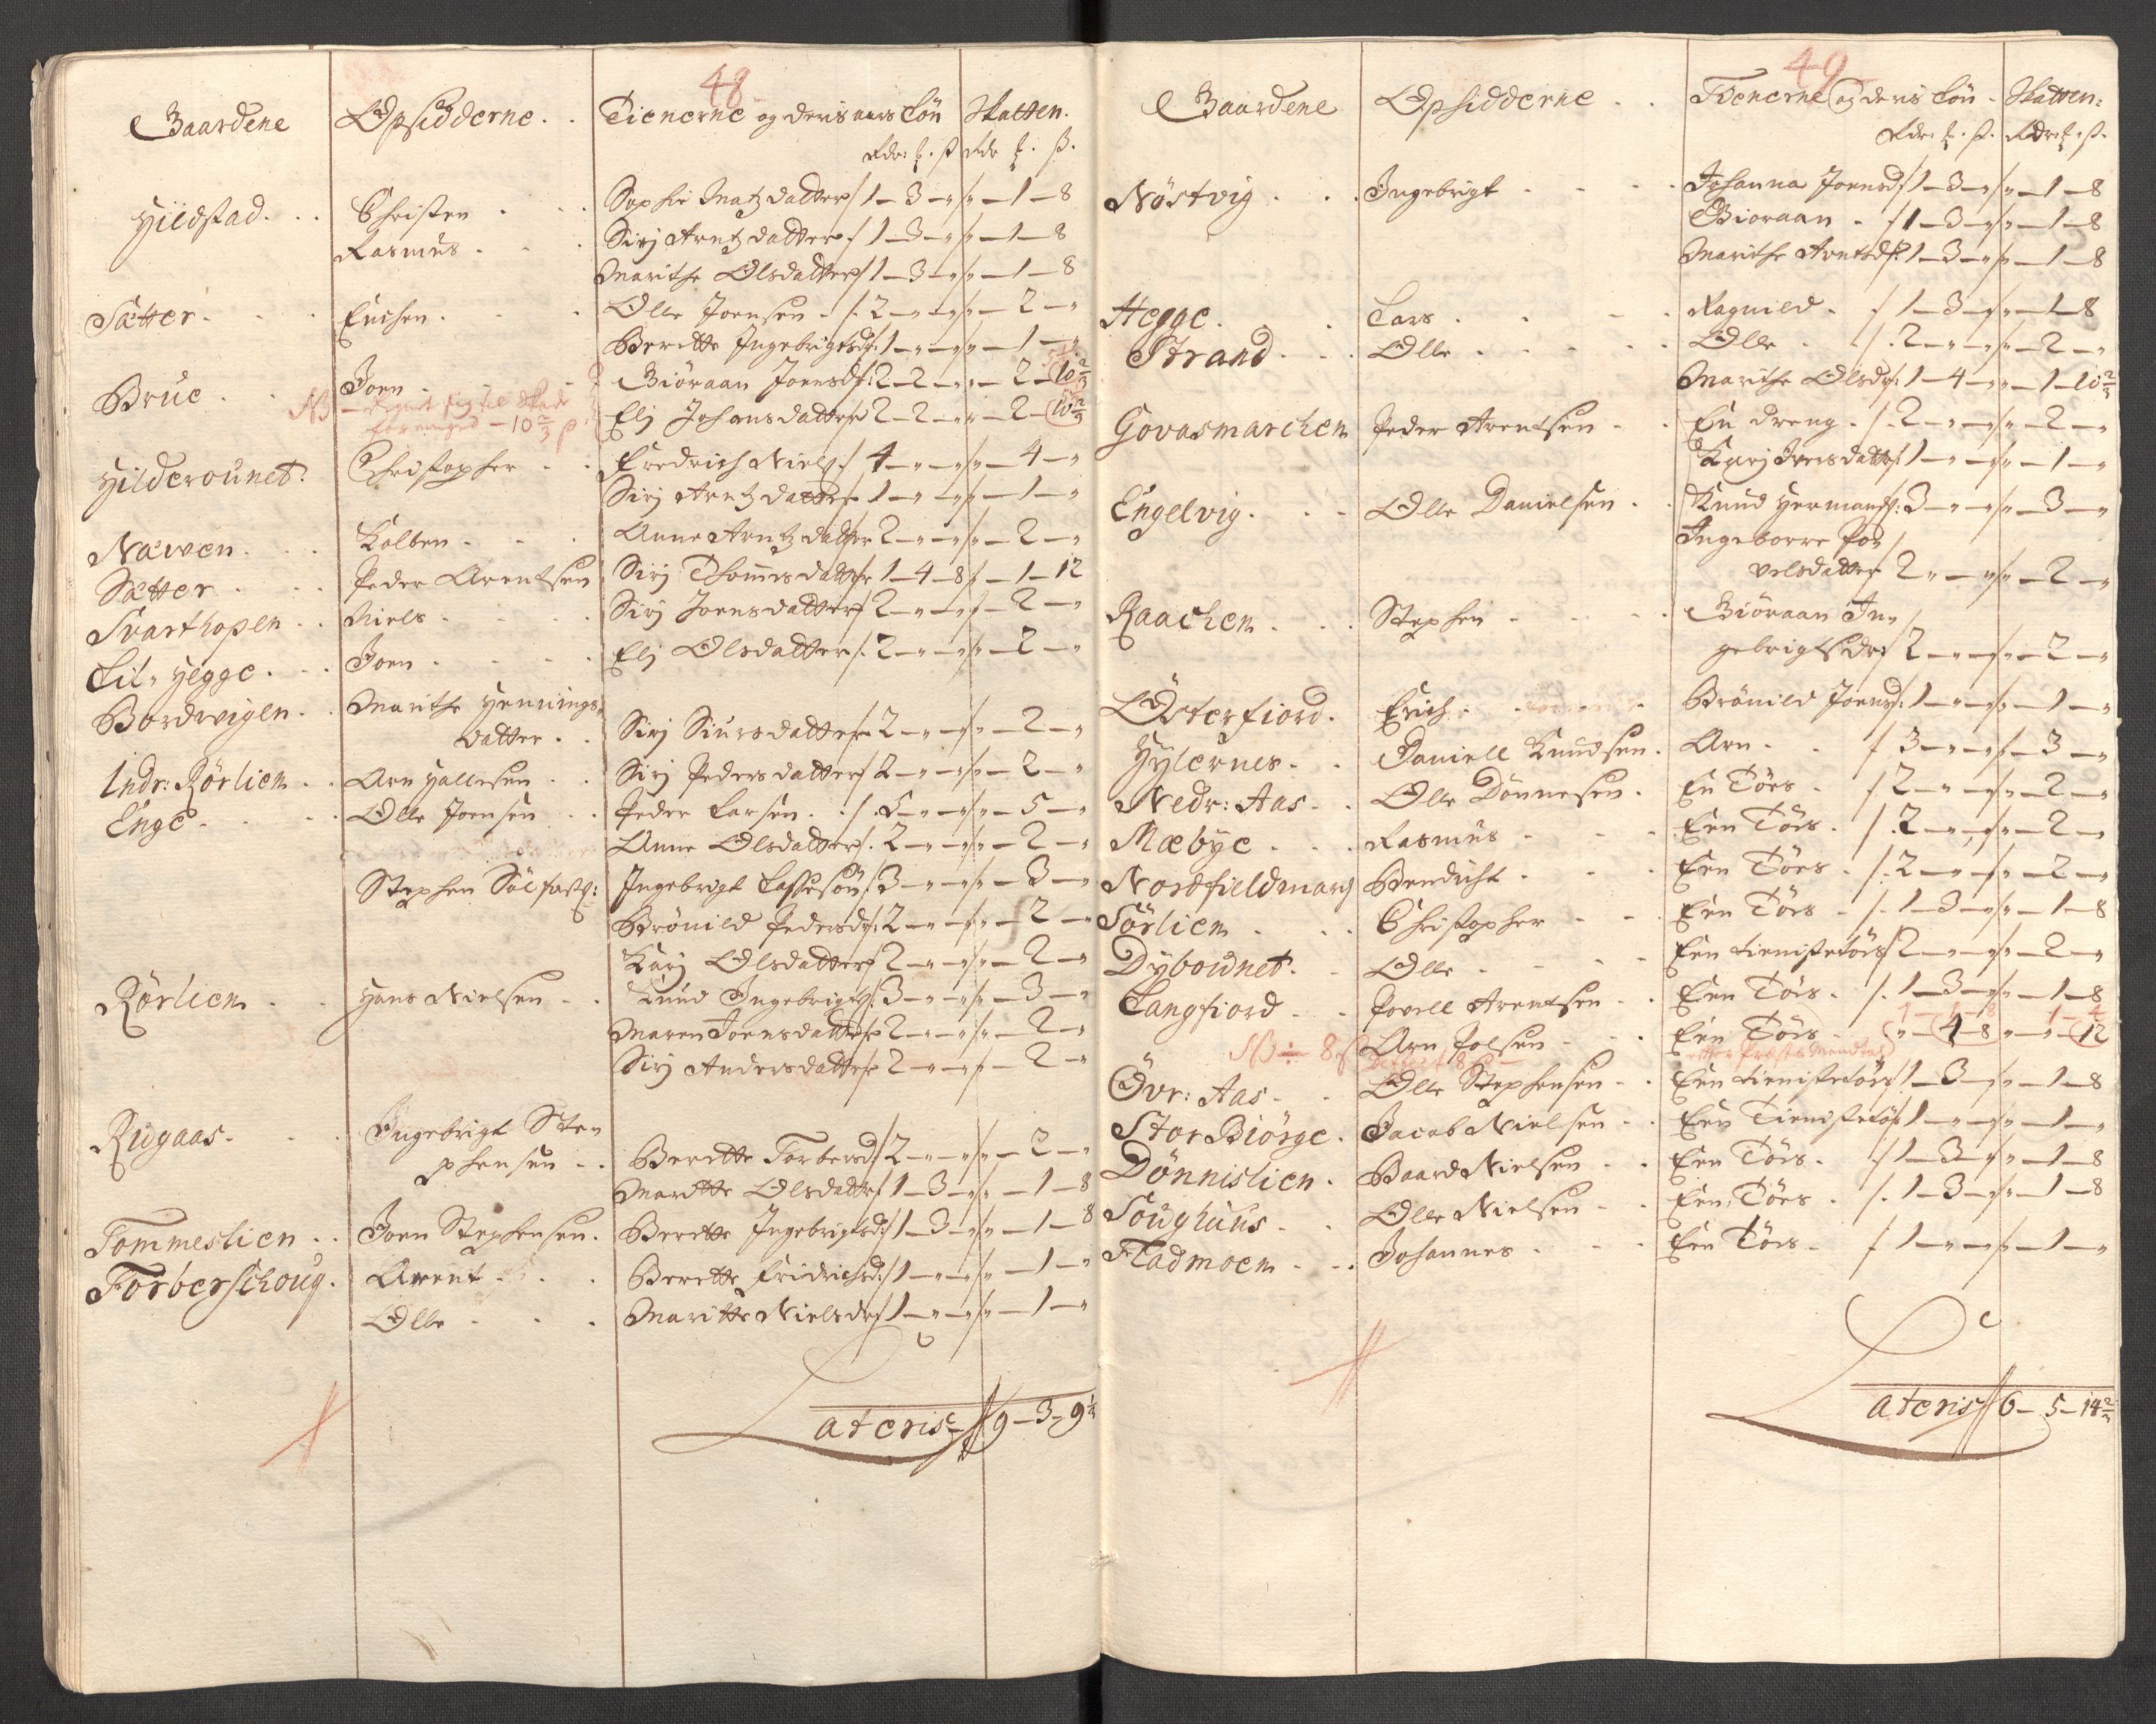 48
Gaardene Opsidderne. Tienerne og deris aars Løn Skatten.
Rdr: ℔. ß Rdr ℔. ß.
Hildstad. Christen Sophie Matzdatter 1-3-" "-1-8
Rasmus Sirj Arntzdatter 1-3-" "-1-8
Marithe Olsdatter 1-3-" "-1-8
Sætter. Erichen. Olle Joensen 2-"-" "-2-"
Beritte Ingebrigtsdr: 1-"-" "-1-"
Brue Joen Giøraan Joensdr: 2-2-" "-2-10 2/3
NB Elj Johansdatter 2-2-" "-2-10 2/3
forringed - 10 2/3 ß
Hilderounet. Christopher Fredrich Niels: 4-"-" "-4-"
Sirj Arntzdatter 1-"-" "-1-"
Næwen Kolben Anne Arntzdatter 2-"-" "-2-"
Sætter Peder Arentsen Sirj Thommisdatter 1-4-8 "-1-12
Svarthopen Niels Sirj Joensdatter 2-"-" "-2-"
Lil-Hegge. Joen Elj Olsdatter 2-"-" "-2-"
Bordwigen. Marithe Hennings-
datter Sirj Siursdatter 2-"-" "-2-"
Indr: Rørlien Arn Hallesen Sirj Pedersdatter 2-"-" "-2-"
Enge Olle Joensen Peder Larsen 5-"-" "-5-"
Anne Olsdatter 2-"-" "-2-"
Stephen Sølfast: Ingebrigt Lassesøn 3-"-" "-3-"
Brønild Pedersdr: 2-"-" "-2-"
Karj Olsdatter 2-"-" "-2-"
Rørlien Hans Nielsen Knud Ingebrigts: 3-"-" "-3-"
Maren Joensdatter 2-"-" "-2-"
Sirj Andersdatter 2-"-" "-2-"
Rugaas Ingebrigt Ste-
phensen Beritte Torbersd: 2-"-" "-2-"
Maritte Olsdatter 1-3-" "-1-8
Tommeslien Joen Stephensen. Beritte Ingebrigtsd: 1-3-" "-1-8
Torberschoug. Arent Beritte Fridrichsd: 1-"-" "-1-"
Olle Maritte Nielsdr 1-"-" "-1-"
Lateris 9-3-9 1/3
49
Gaardene Opsidderne Tienerne og deris Løn Skatten:
Rdr: ℔. ß. Rdr: ℔. ß.
Nøstvig Ingebrigt Johanna Joensd: 1-3-" "-1-8
Giøraan 1-3-" "-1-8
Marithe Arntsd: 1-3-" "-1-8
Hegge. Lars Ragnild 1-3-" "-1-8
Strand Olle Olle 2-"-" "-2-"
Marithe Olsdr: 1-4-" "-1-10 2/3
Govasmarchen Peder Arentsen En dreng 2-"-" "-2-"
Karj Iversdatter 1-"-" "-1-"
Engelvig. Olle Danielsen Knud Hermans: 3-"-" "-3-"
Ingeborre Po-
velsdatter 2-"-" "-2-"
Raachen Stephen Giøraan In-
gebrigtsdr 2-"-" "-2-"
Østerfiord. Erich Brønild Joensd: 1-"-" "-1-"
Hylernes. Daniell Knudsen. Arn 3-"-" "-3-"
Nedr: Aas Olle Dønnesen. En Tøes 2-"-" "-2-"
Mæbye Rasmus Een Tøes 2-"-" "-2-"
Nordfieldmarch Bendicht Een Tøes 2-"-" "-2-"
Sørlien Christopher Een Tøes 1-3-" "-1-8
Dybownet. Olle Een tienistetøes 2-"-" "-2-"
Langfiord Povell Arentsen Een Tøes 1-3-" "-1-8
Arn Jolsen Een Tøes "-4-8 "-"-12
NB 8 ß
Øvr: Aas Olle Stephensen Een tienistetøes 1-3-" "-1-8
Stor Biørge. Jacob Nielsen Een Tienistetøes 1-"-" "-1-"
Dønnislien. Baard Nielsen Een Tøes 1-3-" "-1-8
Soughuus Olle Nielsen Een Tøes 1-3-" "-1-8
Fladmoen Johannes Een Tøes 1-"-" "-1-"
Lateris 6-5-14 2/3